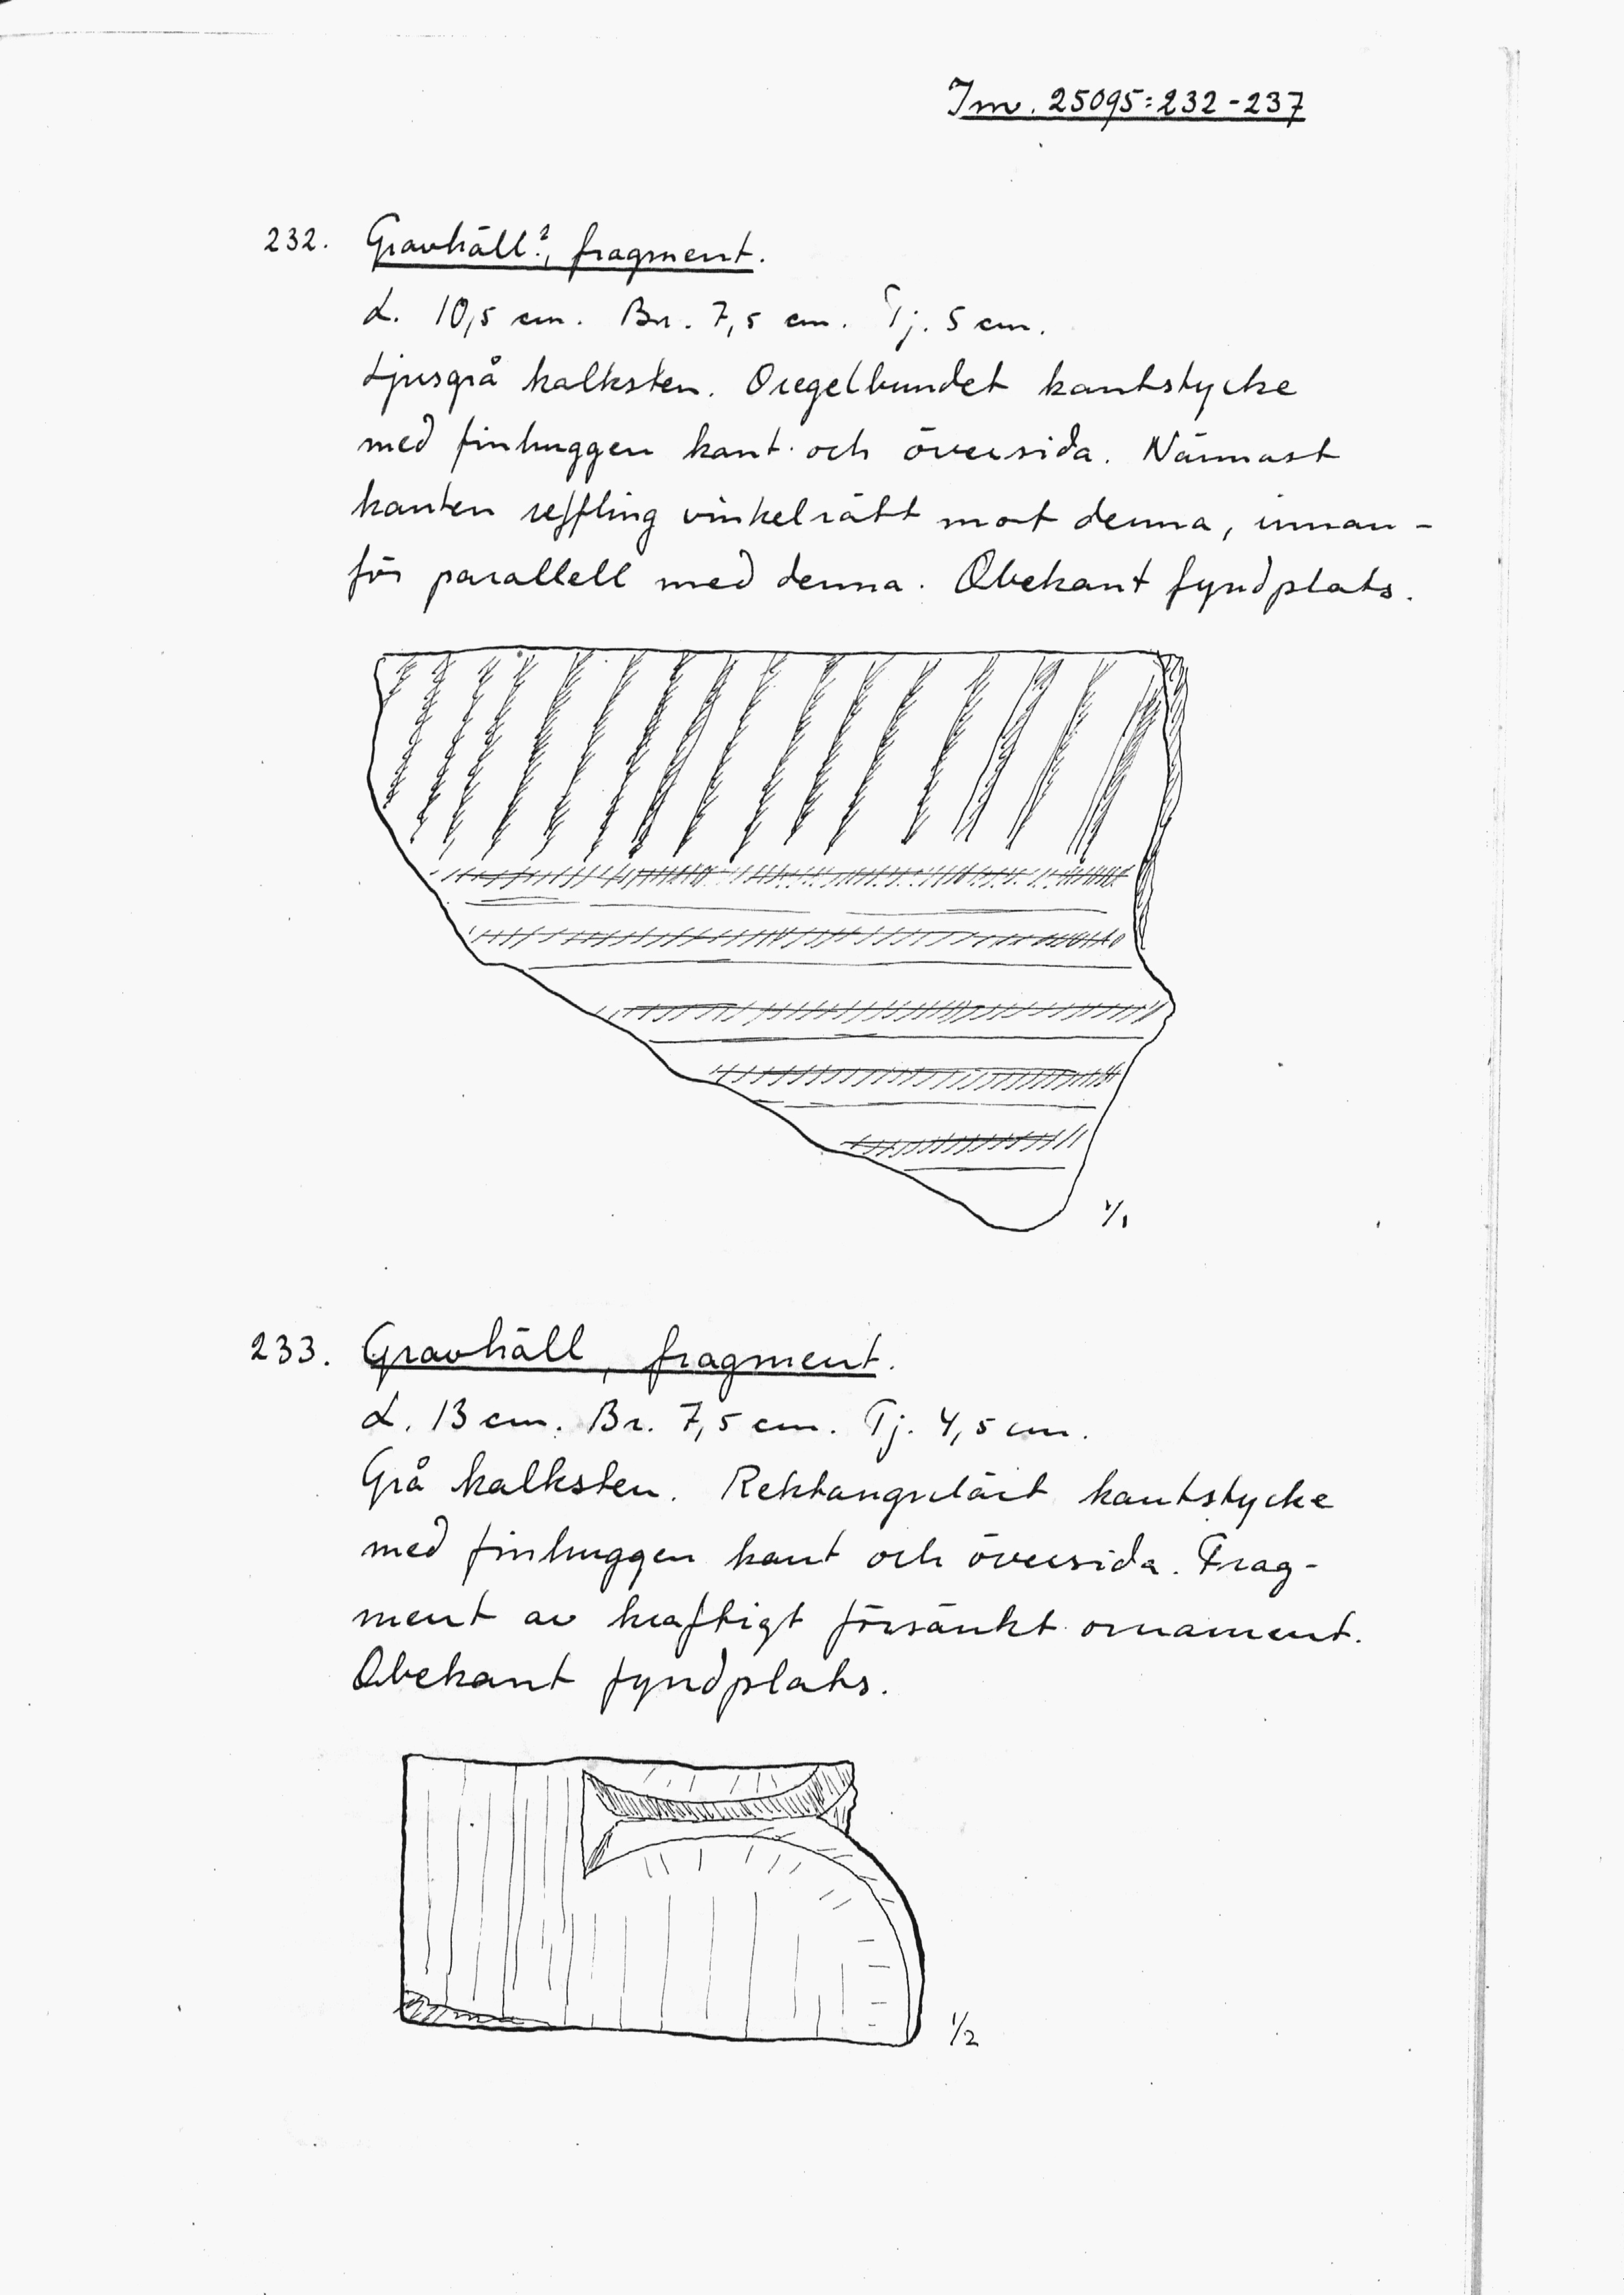 Inv. 25095:232-237
232. Gravhäll?, fragment.
L. 10,5 cm. Br. 7,5 cm. Tj. 5 cm.
Ljusgrå kalksten. Oregelbundet kantstycke
med finhuggen kant och översida. Närmast
kanten reffling vinkelrätt mot denna, innan-
för parallell med denna. Obekant fyndplats.
1/1
233. Gravhäll, fragment.
L. 13 cm. Br. 7,5 cm. Tj. 4,5 cm.
Grå kalksten. Rektangulärt kantstycke
med finhuggen kant och översida. Frag-
ment av kraftigt försänkt ornament.
Obekant fyndplats.
1/2